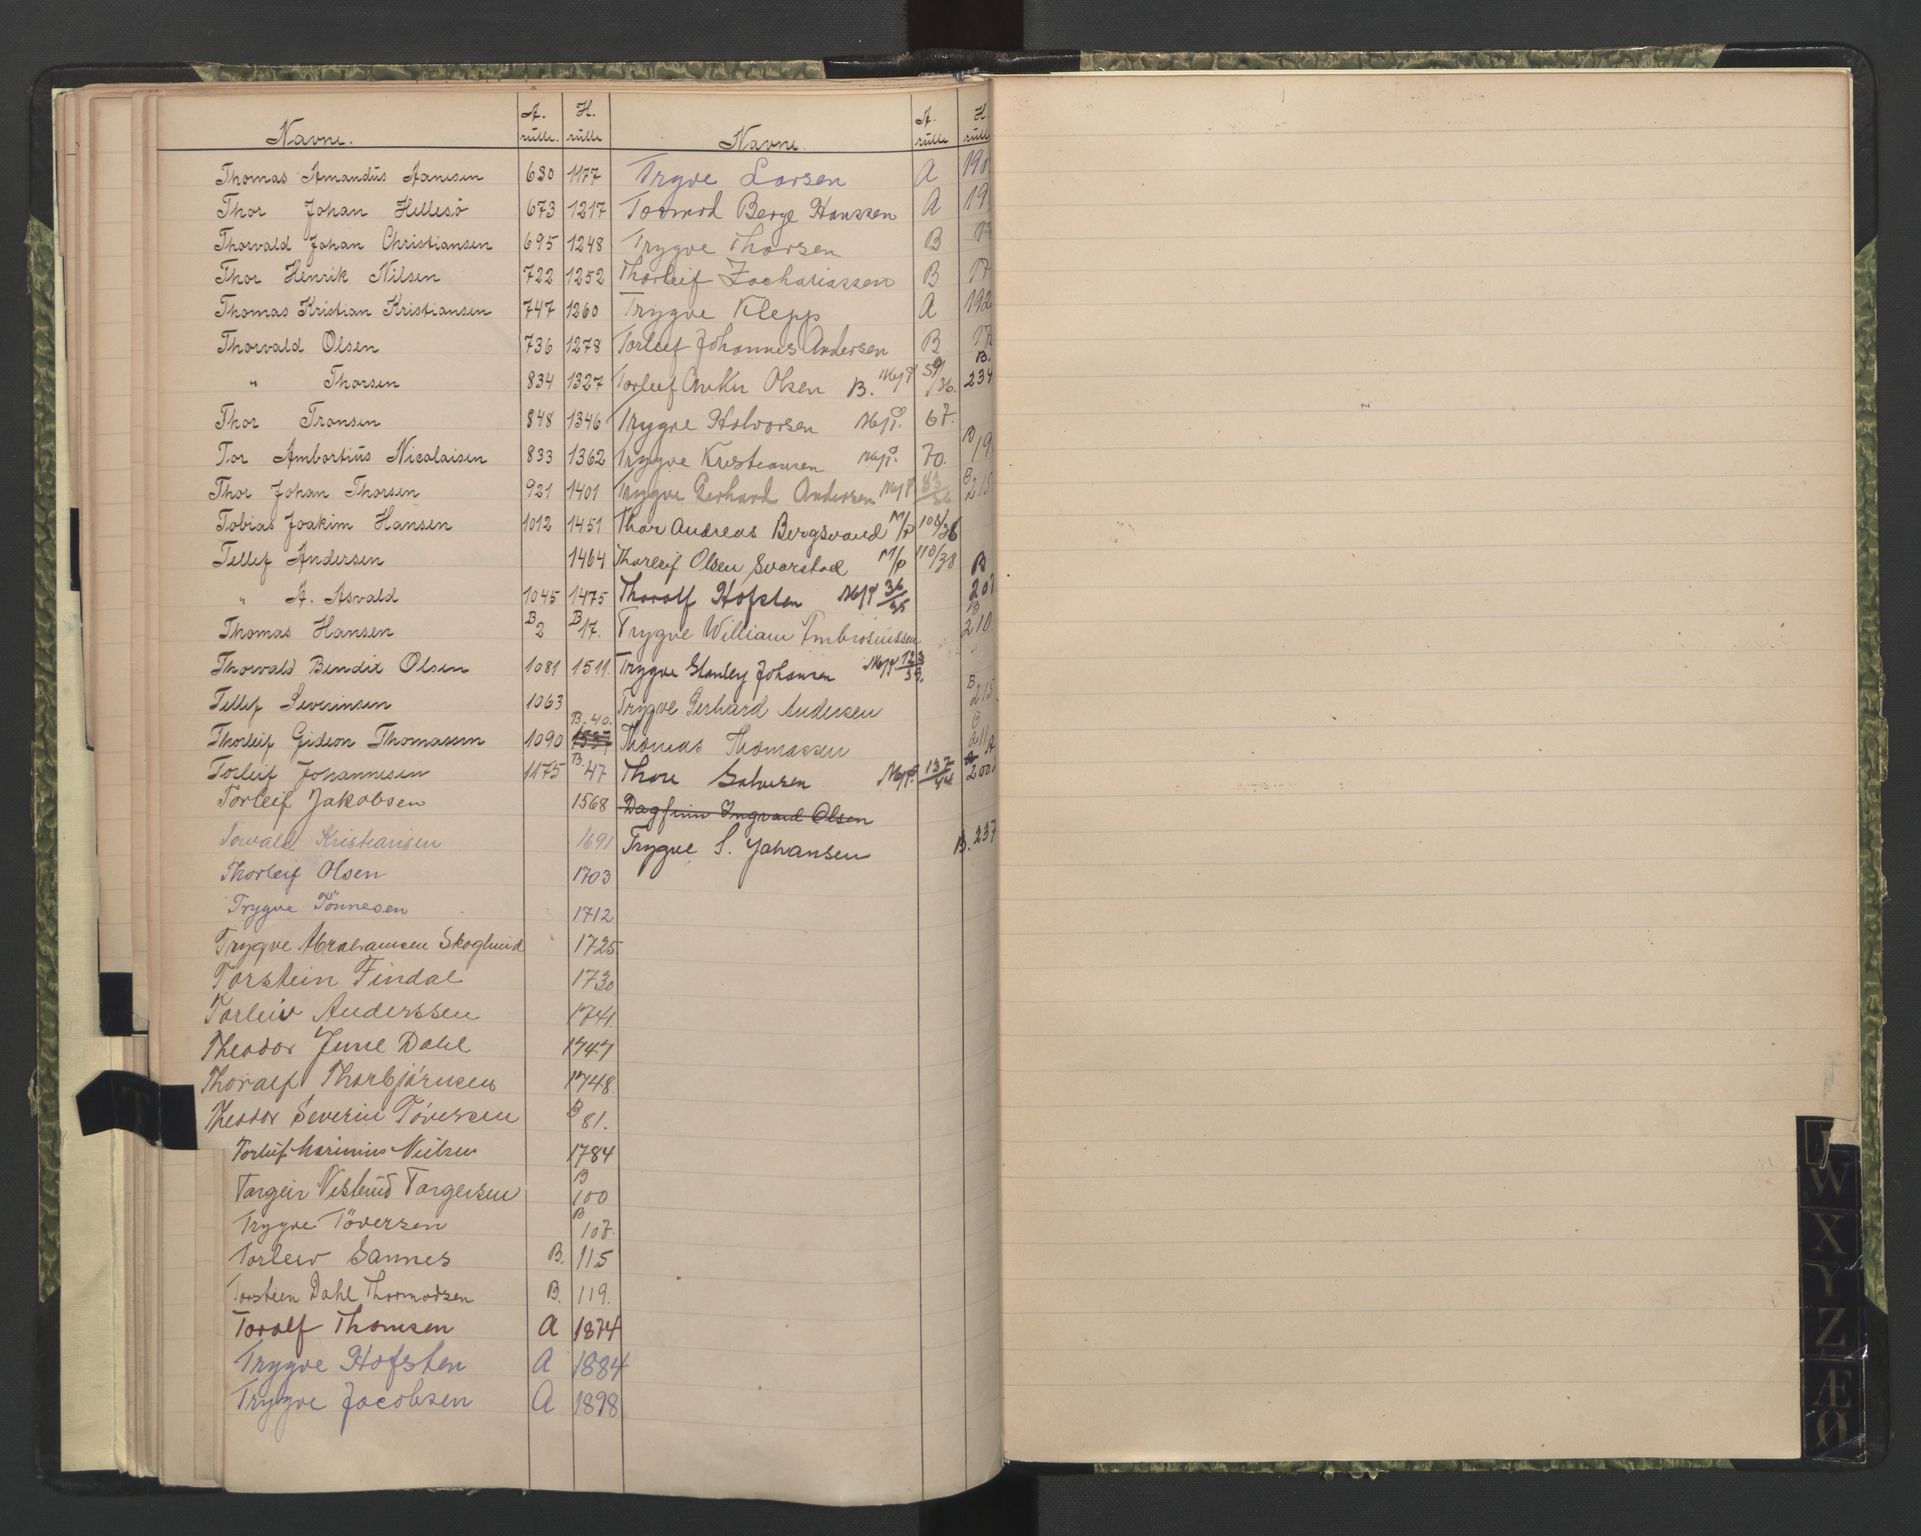 Navne. A. rulle. H. rulle
Thomas Amandus Aanesen 630 1177
Thor Johan Hillesö 673 1217
Thorvald Johan Christiansen 695 1248
Thor Henrik Nilsen 722 1252
Thomas Kristian Kristiansen 747 1260
Thorvald Olsen 736 1278
" Thorsen 834 1327
Thor Tronsen 848 1346
Tor Ambortius Nicolaisen 833 1362
Thor Johan Thorsen 921 1401
Tobias Joakim Hansen 1012 1451
Tellef Andersen 1464
" A. Asvald 1045 1475
Thomas Hansen B 2 B 17.
Thorvald Bendix Olsen 1081 1511.
Tellef Severinsen 1063
Thorleif Gideon Thomassen 1090 B. 40.
Torleif Johannesen 1175 B. 47
Torleif Jakobsen 1568
Torvald Kristiansen 1691
Thorleif Olsen 1703
Trygve Tönnesen 1712
Trygve Abrahamsen Skoglund 1725
Torstein Findal 1730
Torleiv Anderssen 1741
Theodor Juul Dahl 1747
Thoralf Thorbjörnsen 1748
Theodor Severin Töversen B 81.
Torleif Marinius Nielsen 1784
Torgeir Torgersen B 100
Trygve Töversen B 107.
Torleiv Sannes B. 115
Torsteen Dahl Thormodsen B. 119.
Toralf Thomsen A 1874
Trygve Hofsten A 1884
Trygve Jacobsen A 1898
Navne. A. rulle H. rull
Trygve Larsen A 190
Tormod Berge Hanssen A 19
Trygve Thorsen B 17
Thorleif Zachariassen B 17
Trygve Klepp A 192
Torleif Johannes Andersen B 17
Torleif Olsen B. 59/36. B. 234
Trygve Halvorsen 67.
Trygve Kristiansen 70. B 19
Trygve Gerhard Andersen 83/36 B 215
Thor Andreas Bergsvand M/P 108/38
Thorleif Olsen Svarstad M/P 110/38
Thoralf Hofsten 36/35 B 201
Trygve William Ambrosiussen B 210
Trygve Stanley Johansen 123/39.
Trygve Gerhard Andersen B 215.
Thomas Thomassen B 211
Thore Salvesen 137/44 A 200
Dagfinn Ingvard Olsen
Trygve S. Johansen B. 237
T
W
X
Y
Z
Æ
Ø